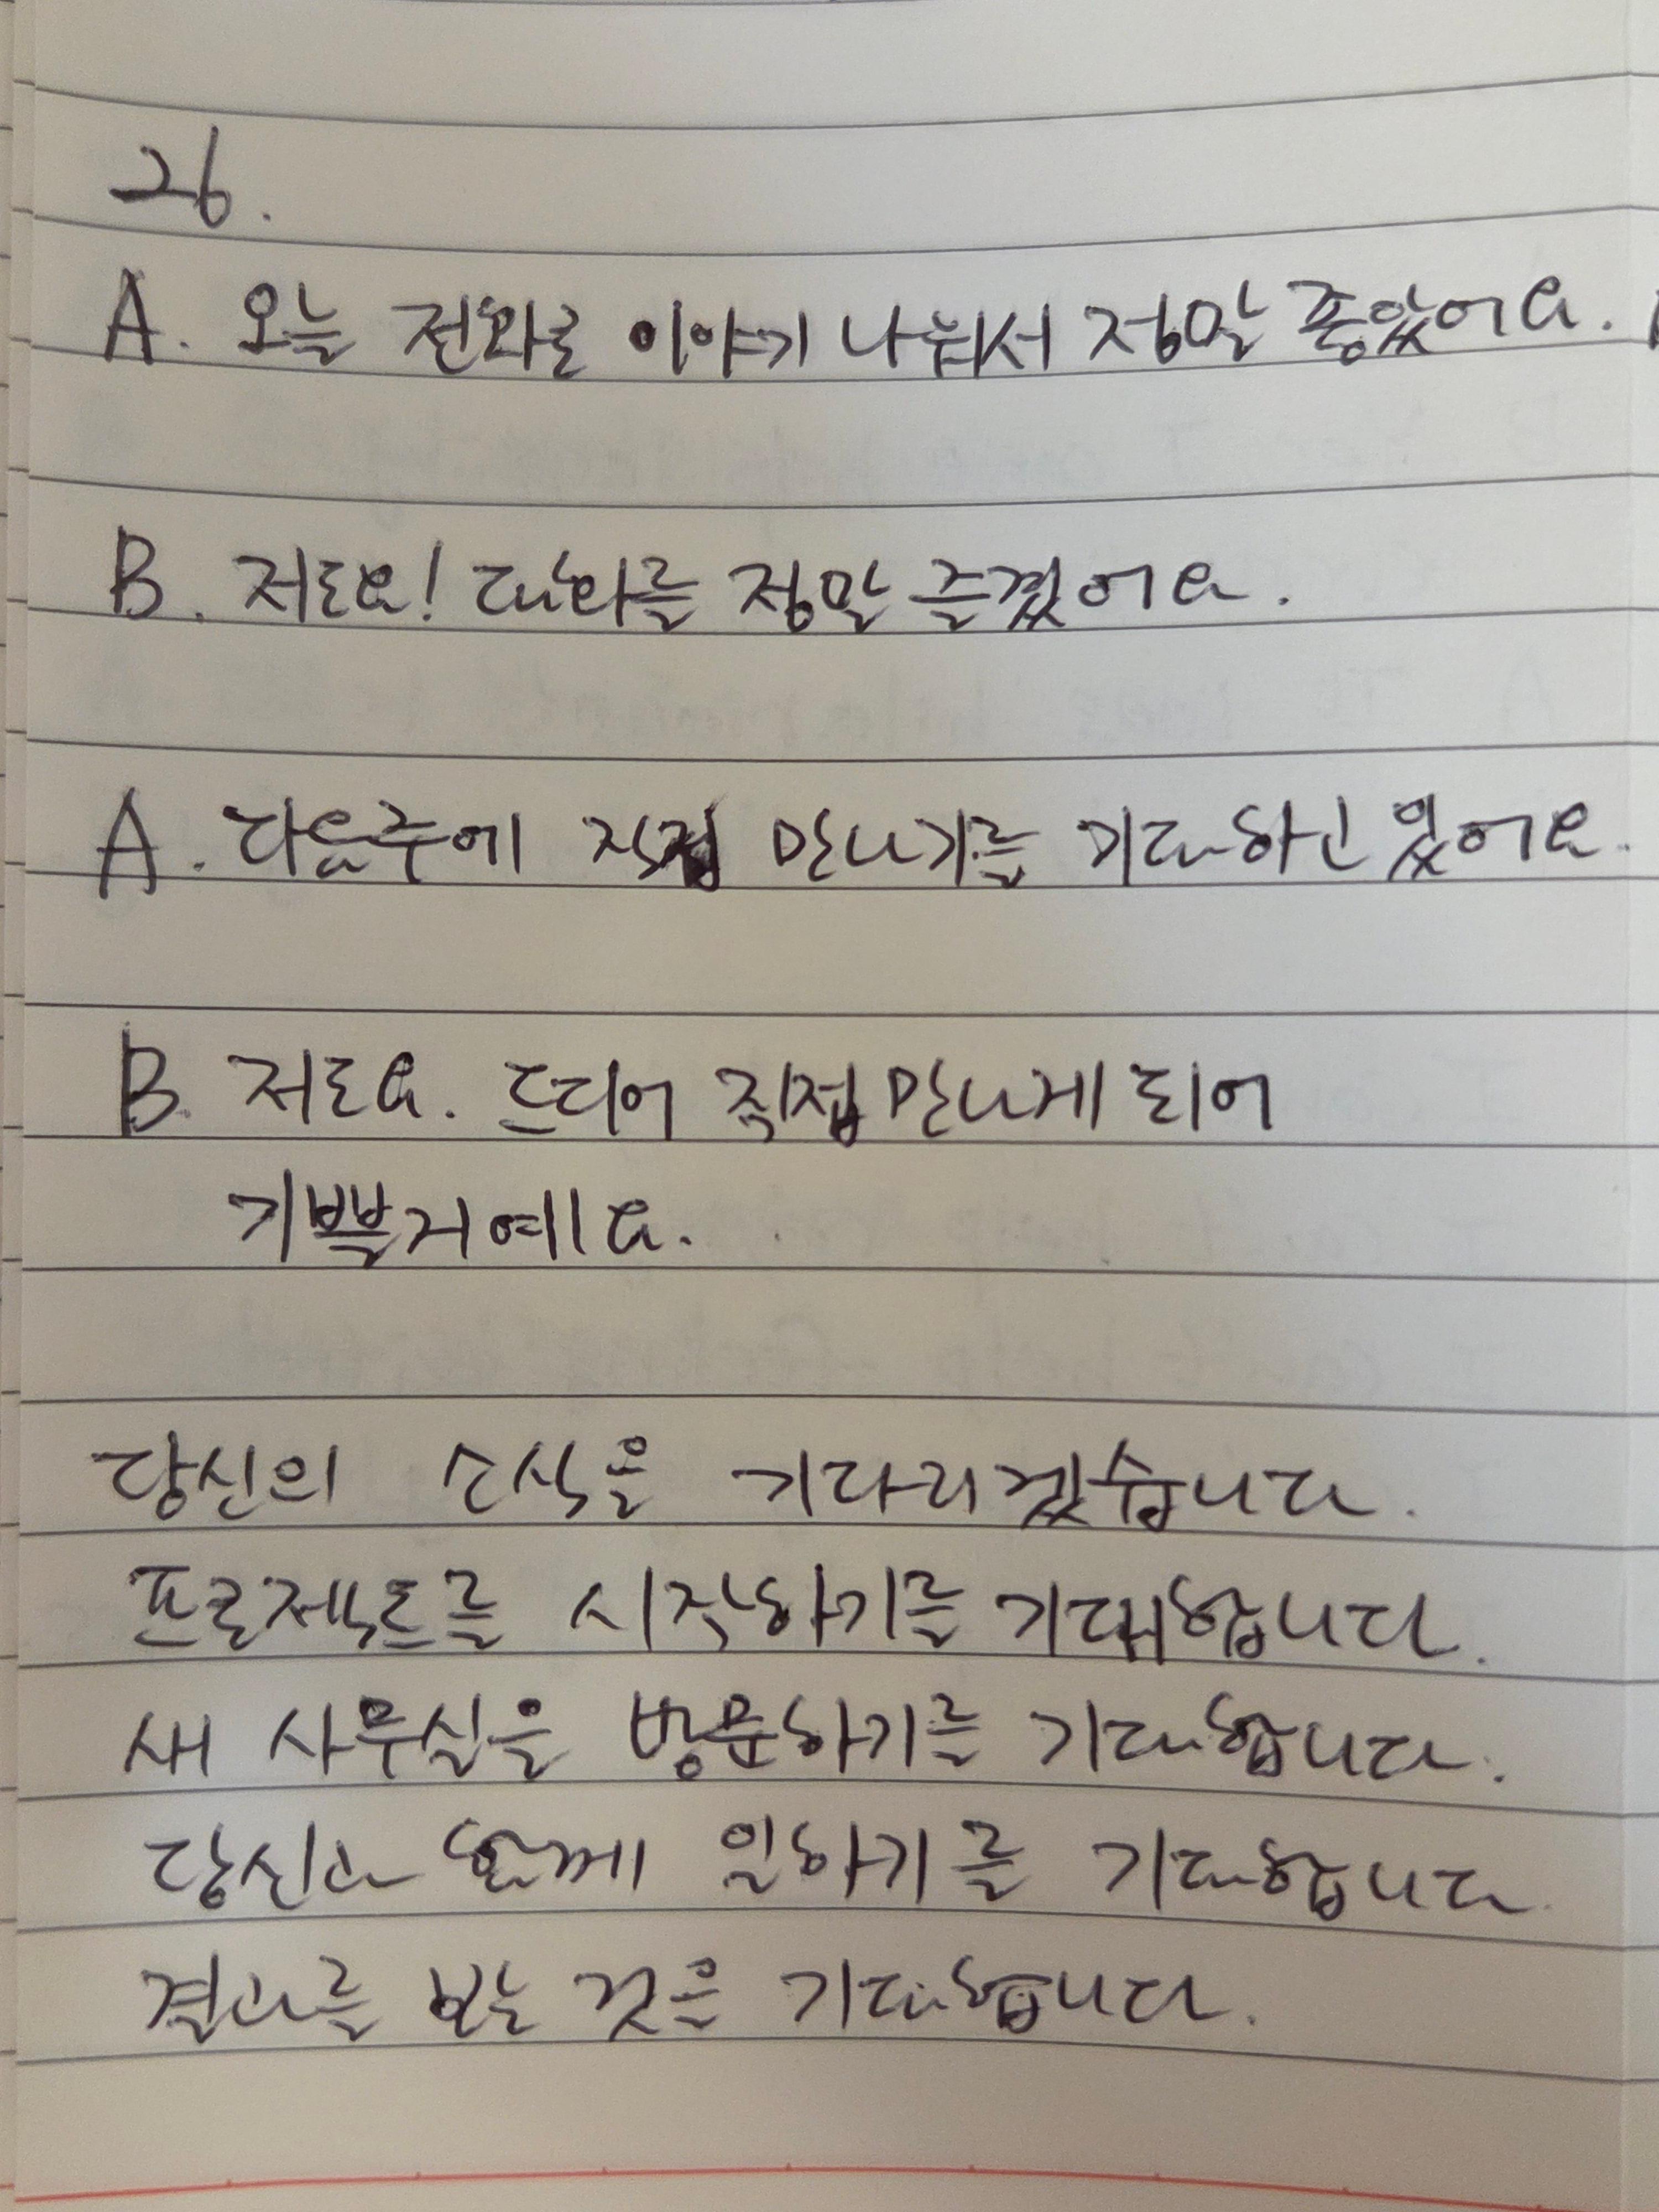 26.
A. 오늘 전화로 이야기 나눠서 정말 좋았어요.
B. 저도요! 대화를 정말 즐겼어요.
A. 다음주에 직접 만나기를 기대하고 있어요.
B. 저도요. 드디어 직접 만나게 되어
기쁠거예요.
당신의 소식을 기다리겠습니다.
프로젝트를 시작하기를 기대합니다.
새 사무실을 방문하기를 기대합니다.
당신과 함께 일하기를 기대합니다.
결과를 보는 것을 기대합니다.